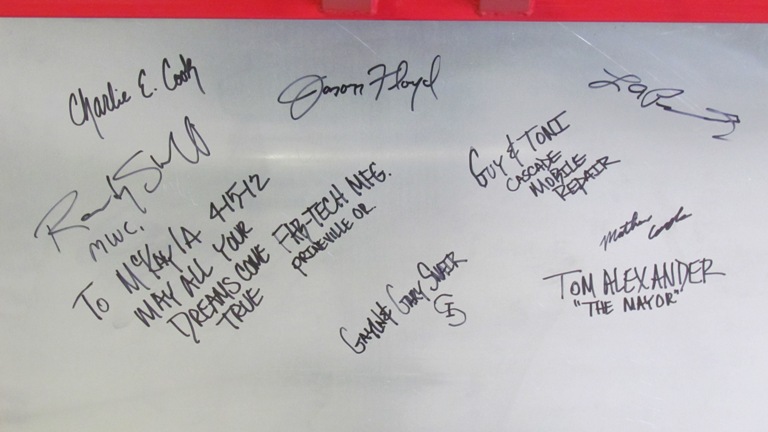 Charlie E. Cook
Jason Floyd
Randy
MWC.
TO McKAYLA 4-15-12
MAY ALL YOUR
DREAMS COME
TRUE
FAB-TECH MFG.
PRINEVILLE OR.
GUY & TONI
CASCADE
MOBILE
REPAIR
GARY
TOM ALEXANDER
"THE MAYOR"